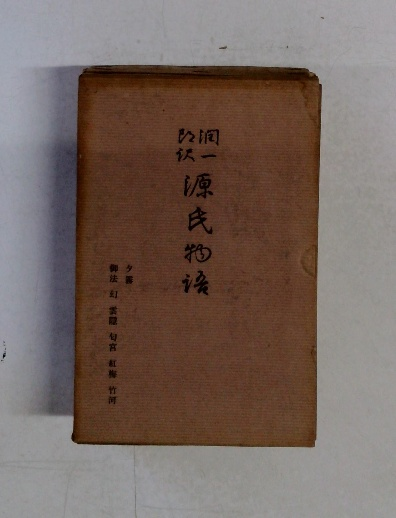 潤一
郎訳
源氏物語
夕霧
御法 幻 雲隠 匂宮 紅梅 竹河